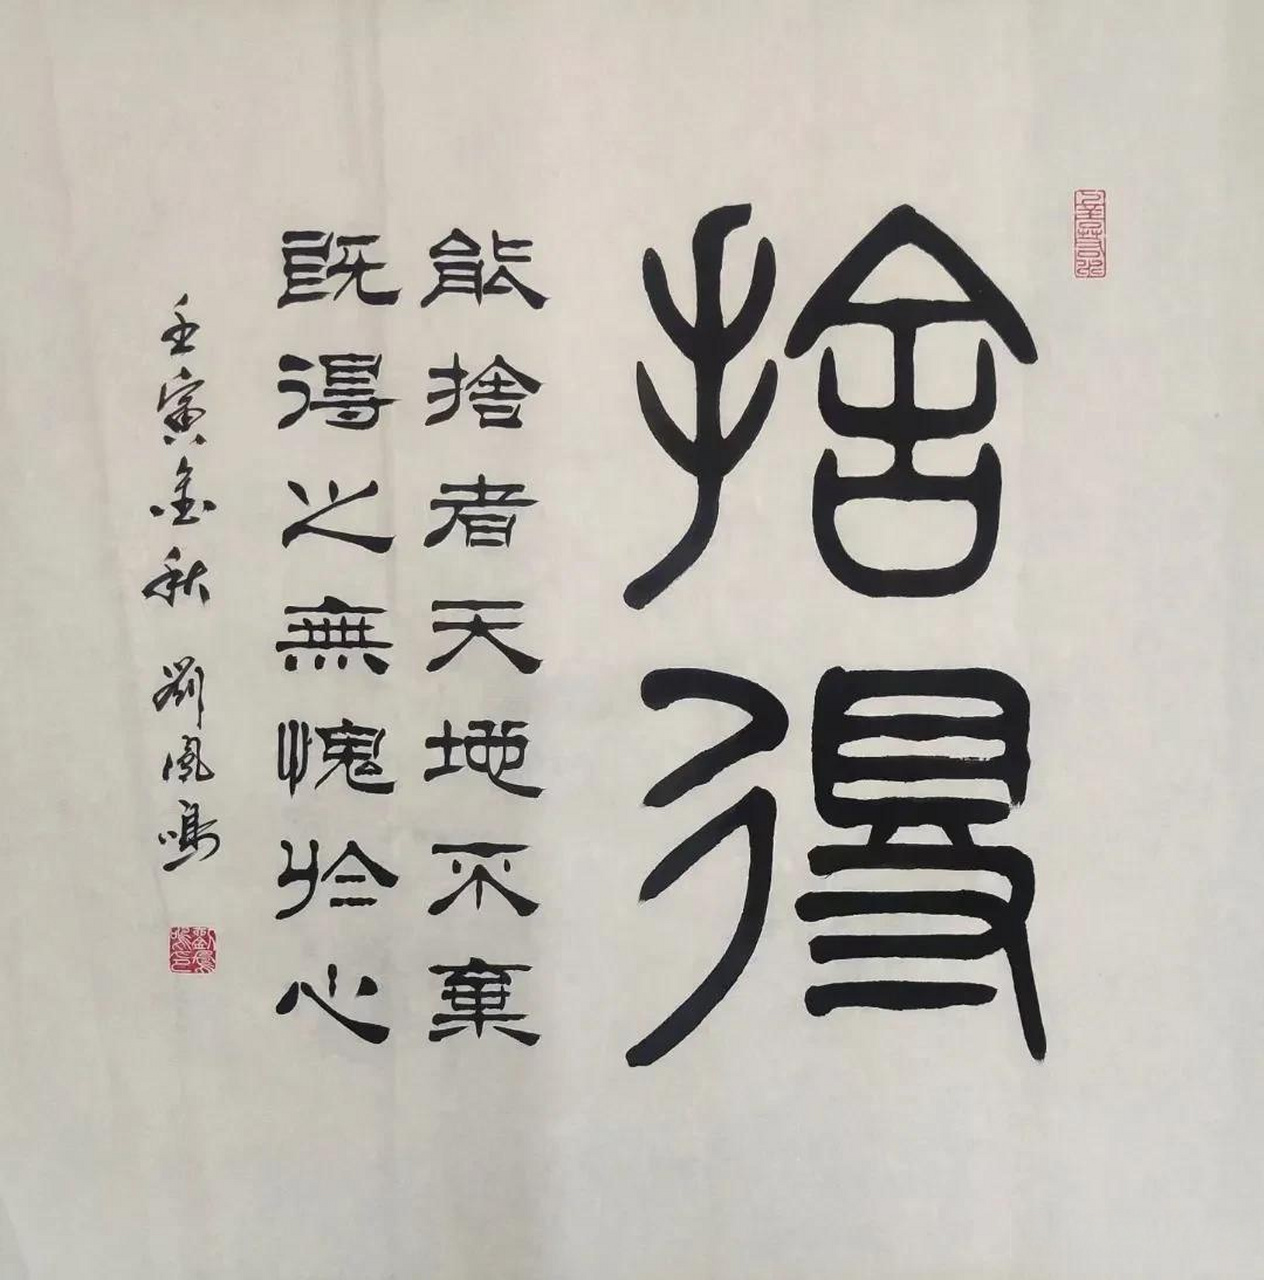 捨得
能捨者天地不棄
既得之無愧於心
壬寅金秋 劉鳳鳴